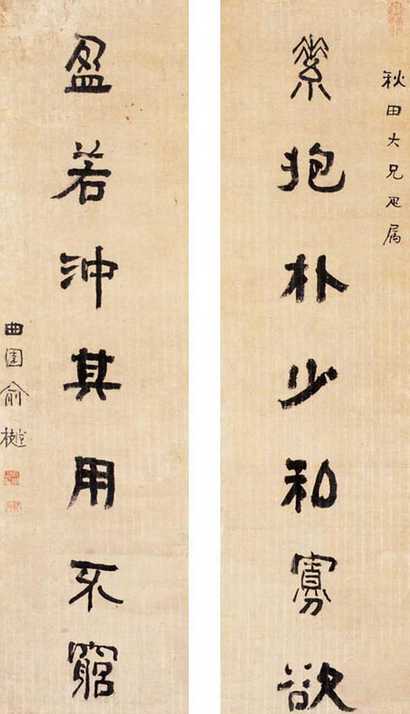 秋田大兄疋属
素抱朴少私寡欲
盈若沖其用不窮
曲園俞樾